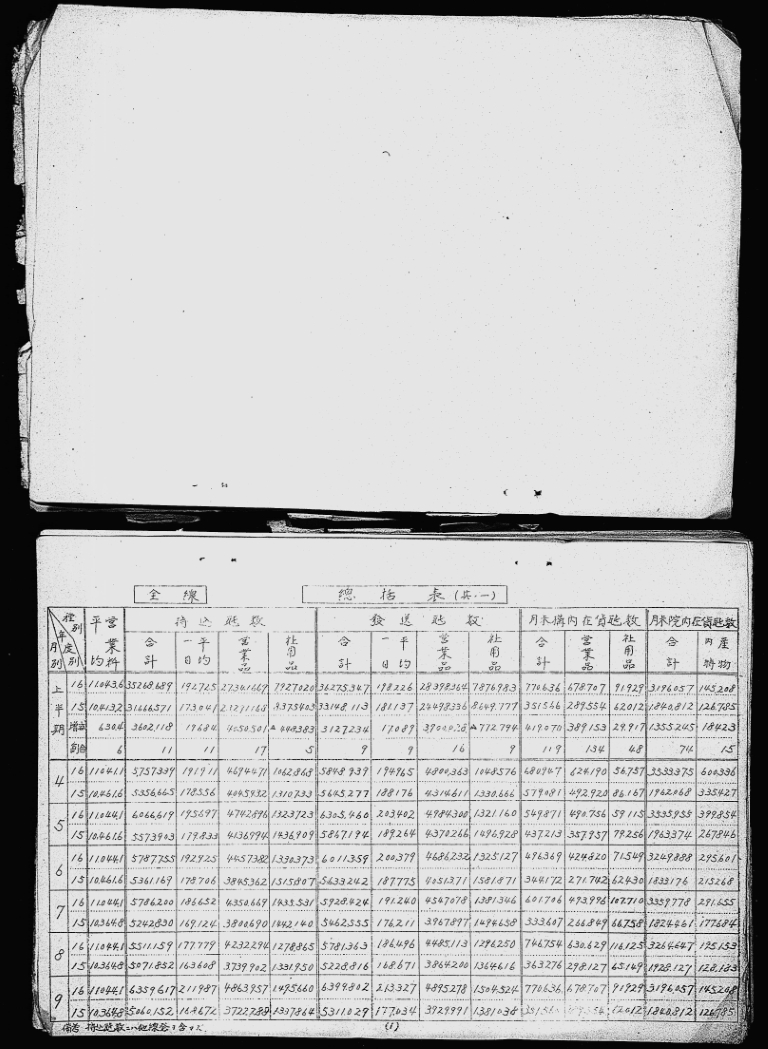 全線 總括表(其.一)
種別 年度別 月別 營業粁平均 持込瓲数 發送瓲数 月末構内在貨瓲数 月末院内在貨瓲数
合計 一日平均 營業品 社用品 合計 一日平均 營業品 社用品 合計 營業品 社用品 合計 内産特物
上半期 16 11,043.6 35268,689 192725 27341,669 7927,020 36275,347 198226 28398,364 7876,983 770,636 678,707 91,929 3196,057 145,208
15 10,413.2 31666,571 173041 33148,113 181,137 24498,336 8649,777 351,566 289,554 62,012 1840,812 126,785
増減 630.4 3602,118 19684 3127,234 17,089 △772,794 419,070 389,153 29,917 1355,245 18,423
割合 6 11 11 17 5 9 9 16 9 119 134 48 74 15
4 16 11,044.1 5757,339 191,911 4694,471 1062,868 5848,939 194,965 4800,363 1048,576 680,947 624,190 56,757 3533,375 600,336
15 10,461.6 5356,665 178,556 4045,932 1310,733 5645,277 188,176 4314,611 1330,666 579,081 492,920 86,167 1962,068 335,427
5 16 11,044.1 6066,619 195,697 4742,896 1323,723 6305,460 203,402 4984,300 1321,160 549,871 490,756 59,115 3535,955 399,854
15 10,461.6 5573,903 179,833 4136,994 1436,909 5867,194 189,264 4370,266 1496,928 437,213 357,957 79,256 1963,374 267,846
6 16 11,044.1 5787,755 192,925 4457,382 1330,373 6011,359 200,379 4686,232 1325,127 496,369 424,820 71,549 3249,888 295,601
15 10,461.6 5361,169 178,706 3845,362 1515,807 5633,242 187,775 4051,371 1581,871 344,172 271,742 62,430 1833,176 215,268
7 16 11,044.1 5786,200 186,652 4350,669 1435,531 5928,424 191,240 4547,078 1381,346 601,706 493,996 107,710 3339,778 291,655
15 10,364.8 5242,830 169,124 3800,690 1442,140 5462,555 176,211 3967,897 1494,658 333,607 266,849 66,758 1824,461 177,684
8 16 11,044.1 5511,159 177,779 4232,294 1278,865 5781,363 186,496 4485,113 1296,250 746,754 630,629 116,125 3264,647 195,153
15 10,364.8 5071,852 163,608 3739,902 1331,950 5228,816 168,671 3864,200 1364,616 363,276 298,127 65,149 1928,127 128,183
9 16 11,044.1 6359,617 211,987 4863,957 1495,660 6399,802 213,327 4895,278 1504,524 770,636 678,707 91,929 3196,057 145,208
15 10,364.8 5060,152 168,672 3722,288 1337,864 5311,029 177,034 3929,991 1381,038 1840,812 126,785
(1)